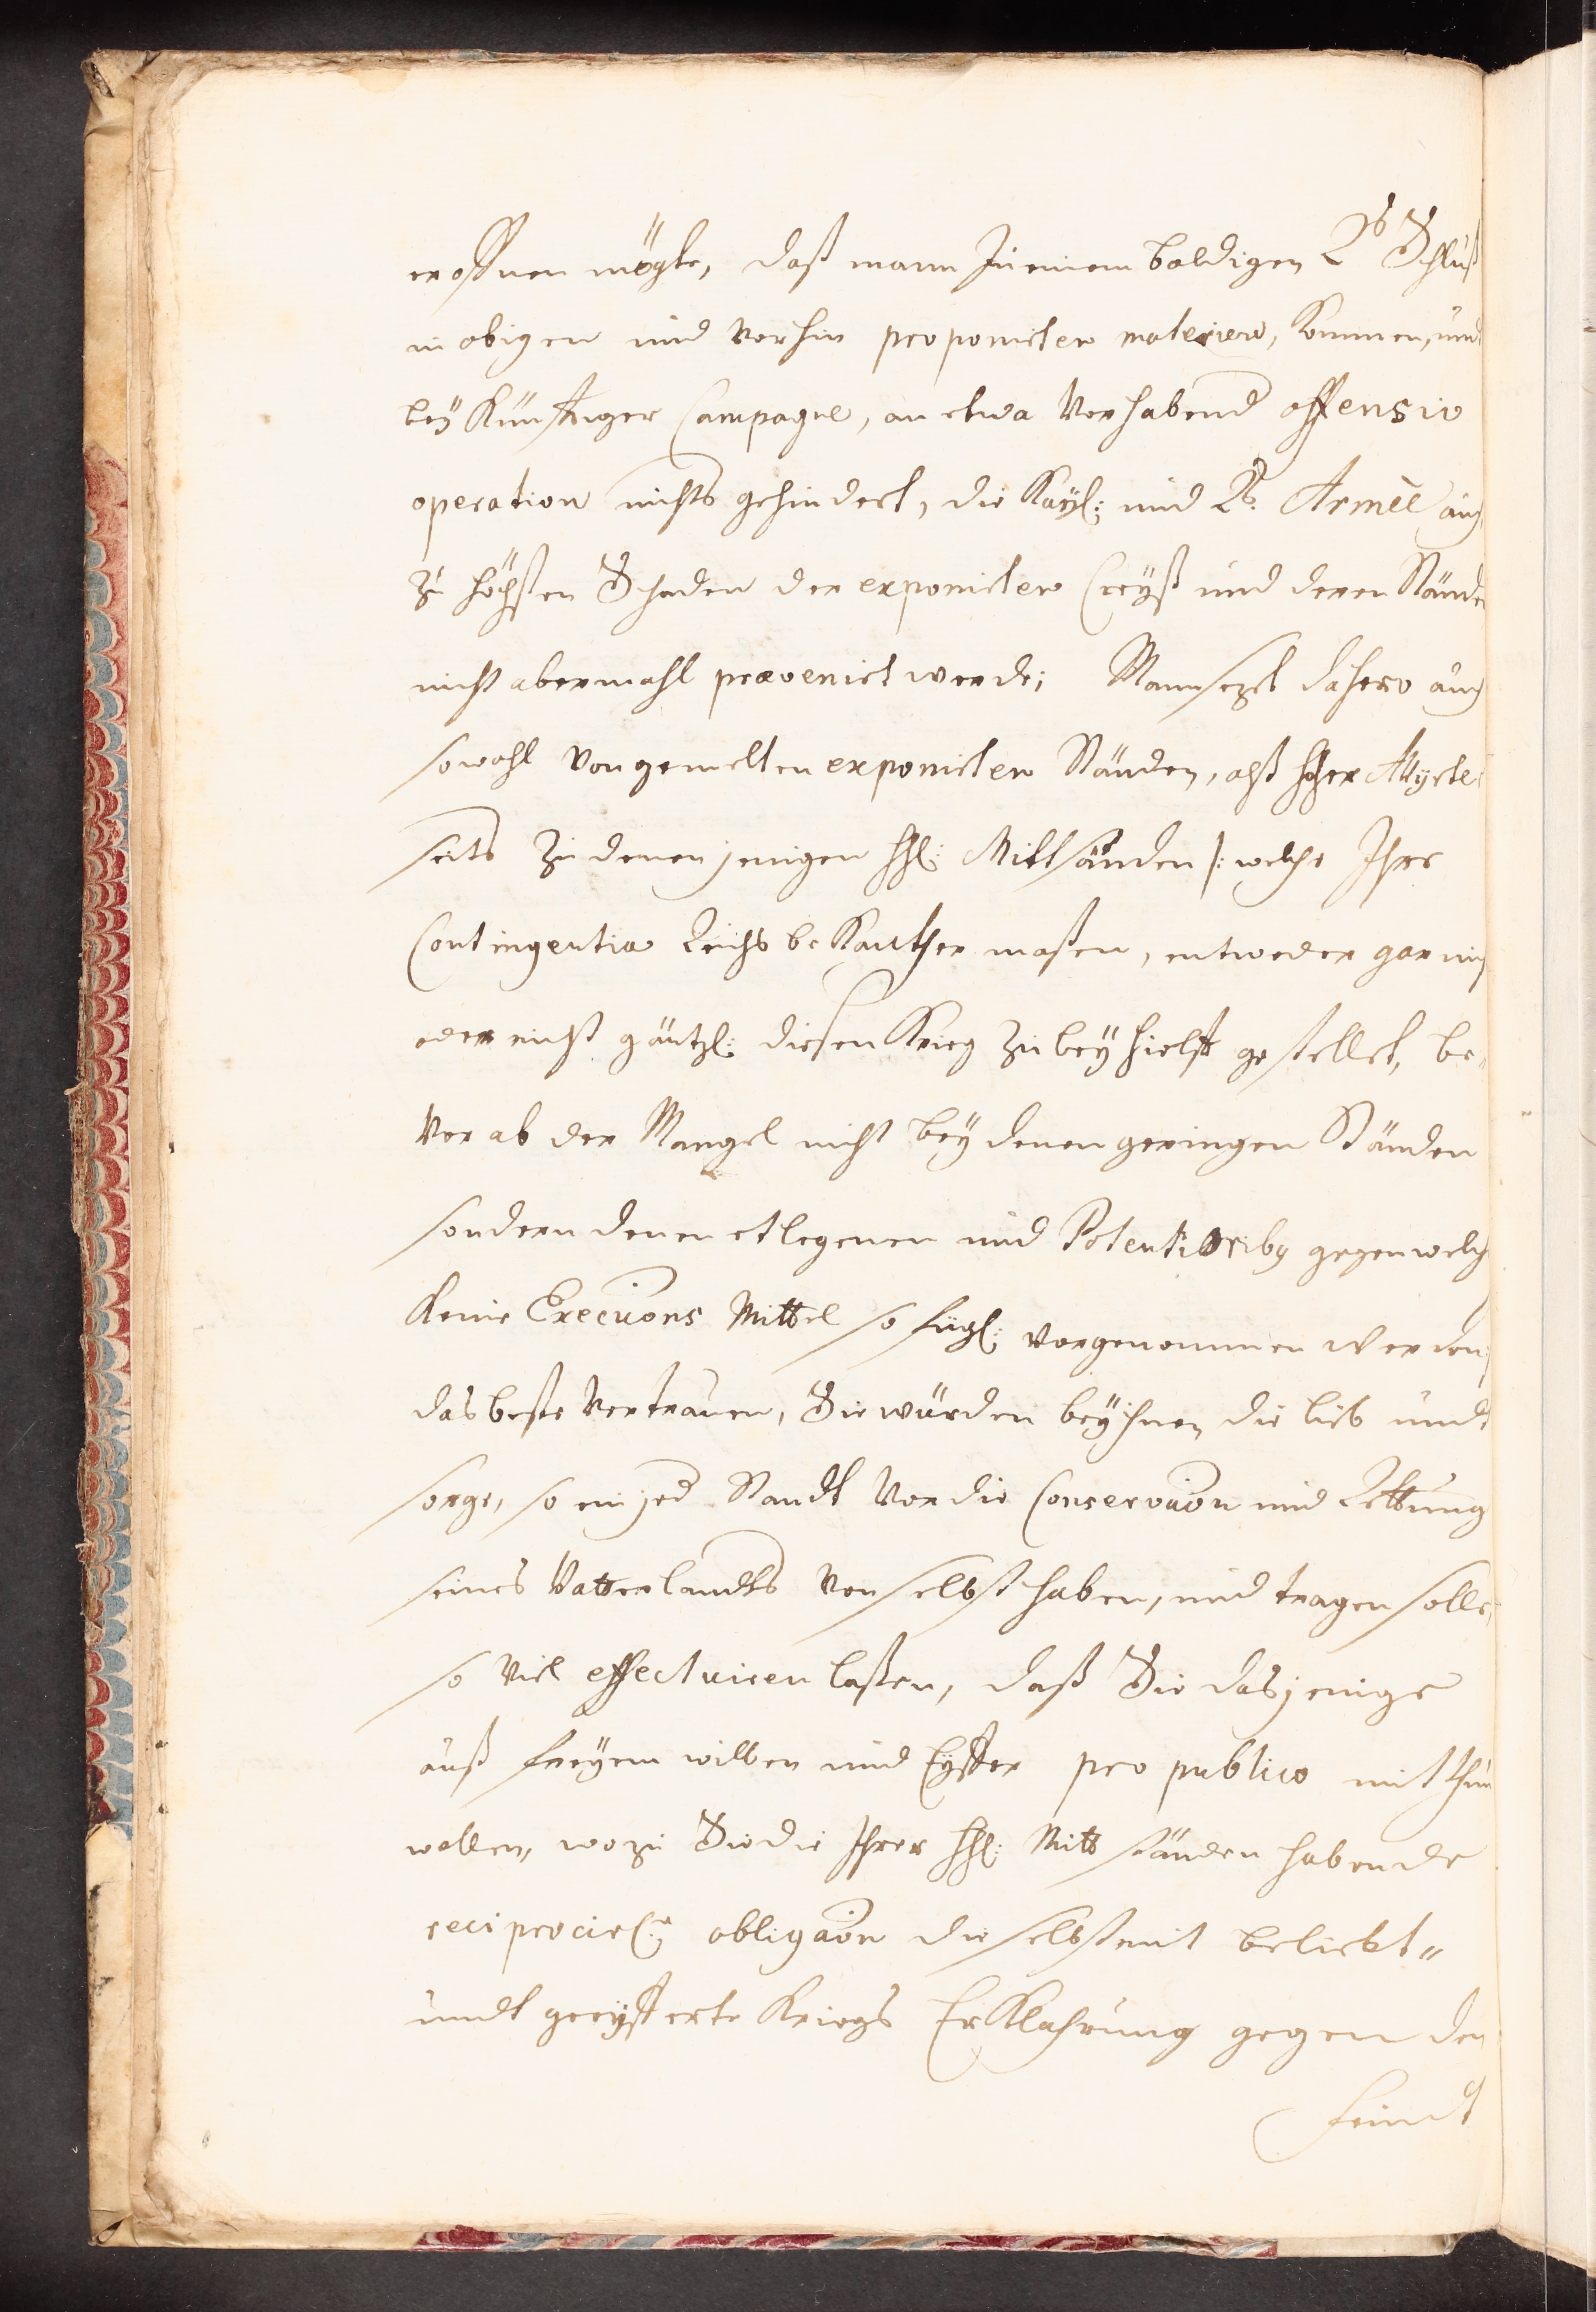 eroffnen mögte, daß mann zu einem baldigen Rs Schluß
in obigen und vorhin proponirten materien, kommen, und
bey künfftiger Campagne, an etwa vorhabend offensiv
operation nichts gehindert, die Kayl: und Rs. Armèe auch
zu höchsten Schaden der exponirten Creyß und deren Stände
nicht abermahl prævenirt werde; Mann setzt dahero auch
sowohl von gemelten exponirten Ständen, alß hoher Allyrte
seits zu denen jenigen hhl: Mittständen /: welche Ihre
Contingentia Reichs bekanther maßen, entweder gar nich
oder nicht gäntzl: diesen Krieg zu beyhielff gestellet, be„
vorab der Mangel nicht bey denen geringen Ständen
sondern denen etlegenen und Potentioribq gegen welch
keine Execuons Mittel so fügl: vorgenommen werden
das beste vertrauen, Sie würden bey ihnen die lieb undt
sorge, so ein jed Standt vor die Conservaon und Rettung
seines Vatterlandts von selbst haben, und tragen solle,
so viel effectuiren laßen, daß Sie dasjenige
auß freyem willen und Eyffer pro publico mit thun
wollen, wozu Sie die Ihrer hhl: Mittständen habende
reciprocirl. obligaon die selbst mit beliebt„
undt geeyfferte Kriegs Erklahrung gegen den
feindt